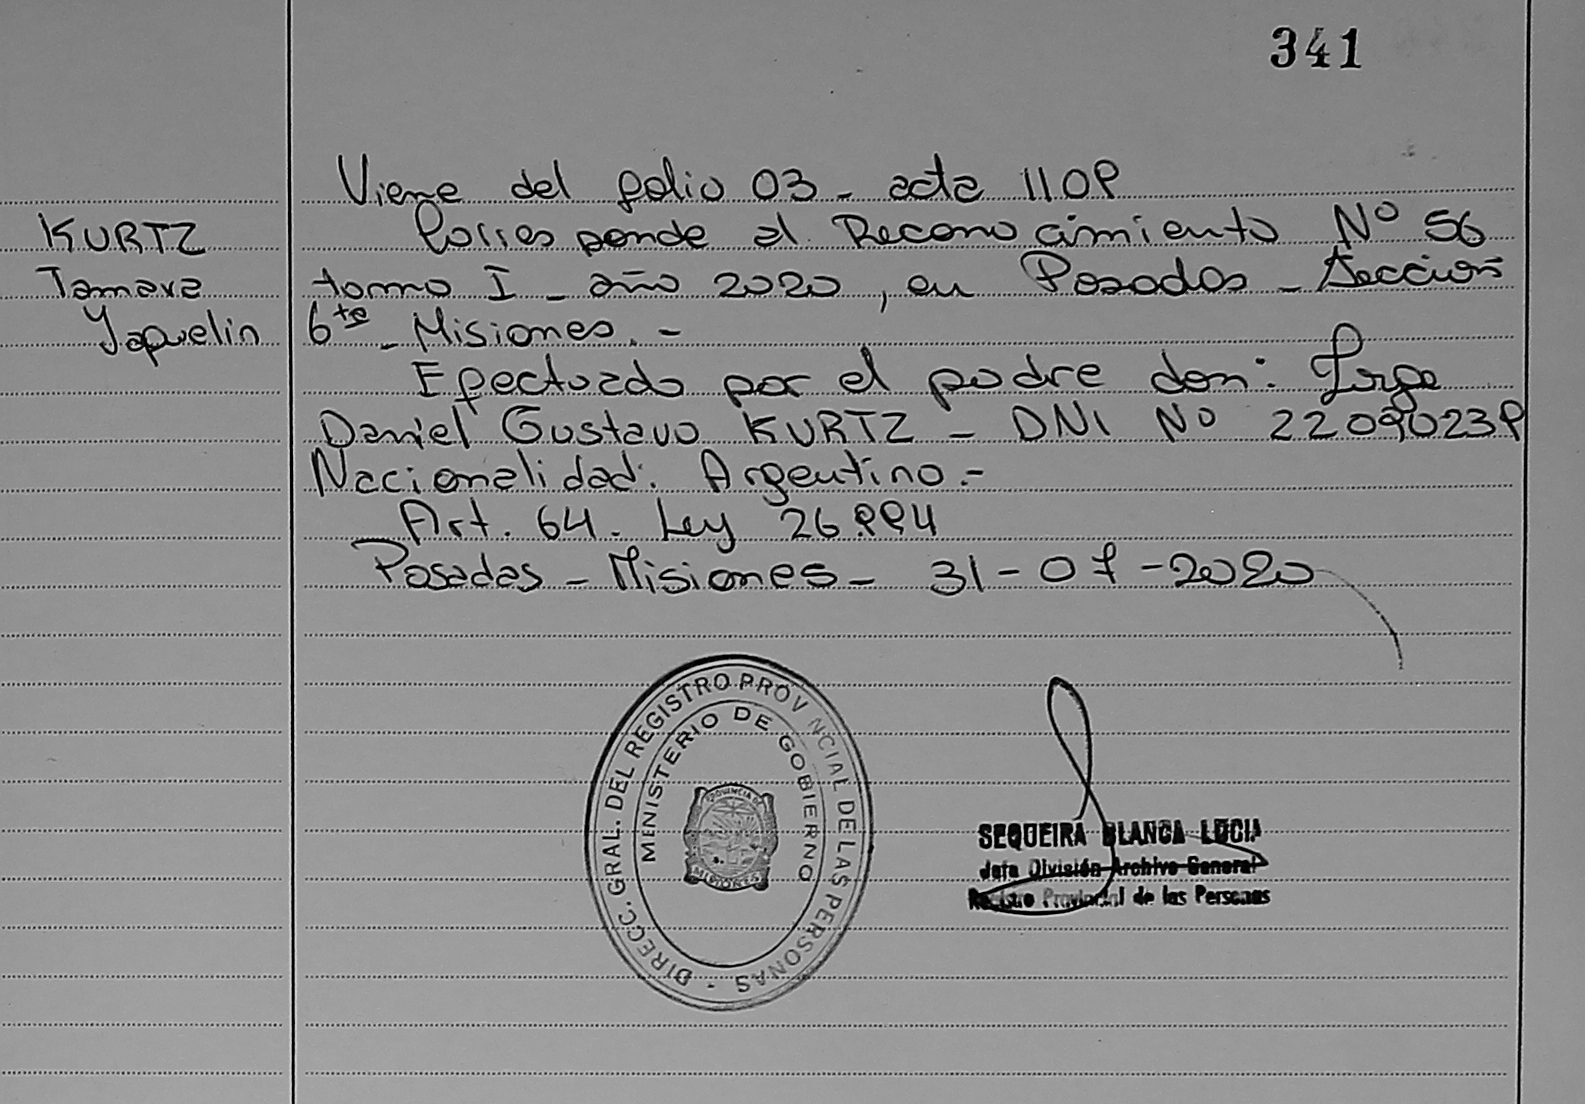 341
Viene del folio 03 - acta 1109
KURTZ
Tamara
Yaquelin
Corresponde al Reconocimiento Nº 56
tomo I - año 2020, en Posadas - Sección
6ta - Misiones. -
Efectuado por el padre don: Jorge
Daniel Gustavo KURTZ - DNI Nº 22090239
Nacionalidad: Argentino.-
Art. 64. Ley 26.994
Posadas - Misiones - 31-07-2020
DIRECC. GRAL. DEL REGISTRO PROV NCIAL DE LAS PERSONAS
MINISTERIO DE GOBIERNO
PROVINCIA DE
MISIONES
SEQUEIRA BLANCA LUCIA
Jefa División Archivo General
Registro Provincial de las Personas